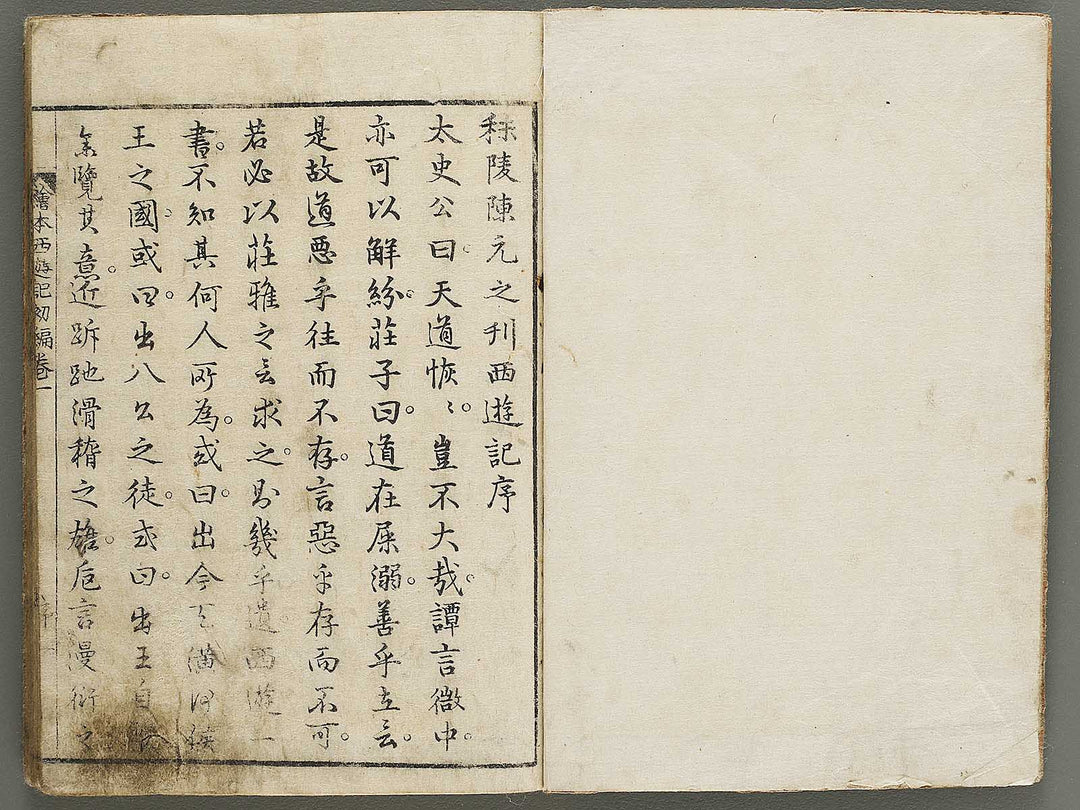 秣陵陳元之刊西遊記序
太史公曰天道恢〻豈不大哉譚言微中
亦可以解紛莊子曰道在屎溺善乎立言
是故道惡乎往而不存言惡乎存而不可
若必以莊雅之言求之則幾乎遺西遊一
書不知其何人所為或曰出今天潢何侯
王之國或曰出八公之徒或曰出王自製
余覽其意近跅跎滑稽之雄卮言漫衍之
繪本西遊記初編卷一
序